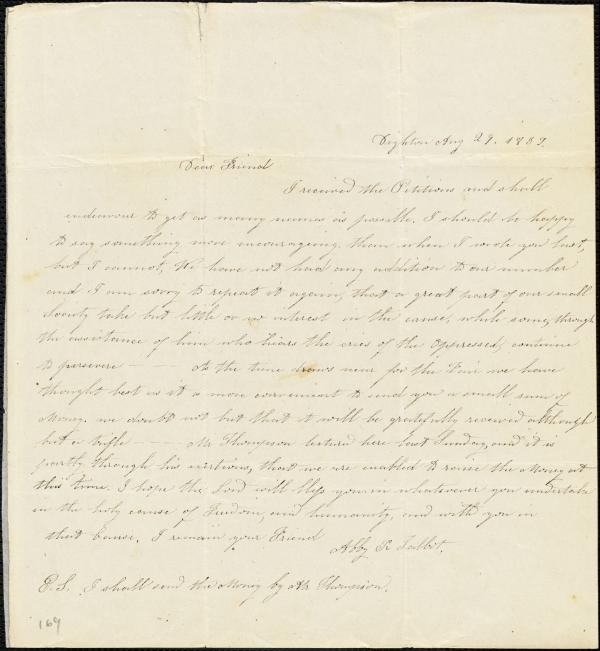 Dighton Aug 29. 1839.
Dear Friend
I received the Petitions and shall
endeavour to get as many names as possible. I should be happy
to say something more encourageing, than when I wrote you last,
but I cannot, We have not had any addition to our number
and I am sorry to repeat it again, that a great part of our small
Society take but little or no interest in the cause, while some, through
the assistance of him who hears the cries of the oppressed, continue
to persevere — — — As the time draws near for the Fair we have
thought best as it is more convenient to send you a small sum of
Money. we doubt not but that it will be gratefully received although
but a trifle — — — Mr Thompson lectured here last Sunday, and it is
partly through his exertions, that we are enabled to raise the Money at
this time. I hope the Lord will bless you in whatsoever you undertake
in the holy cause of Freedom, and humanity, and with you in
that Cause, I remain your Friend
Abby R Talbot.
P.S. I shall send the Money by Mr Thompson.
169